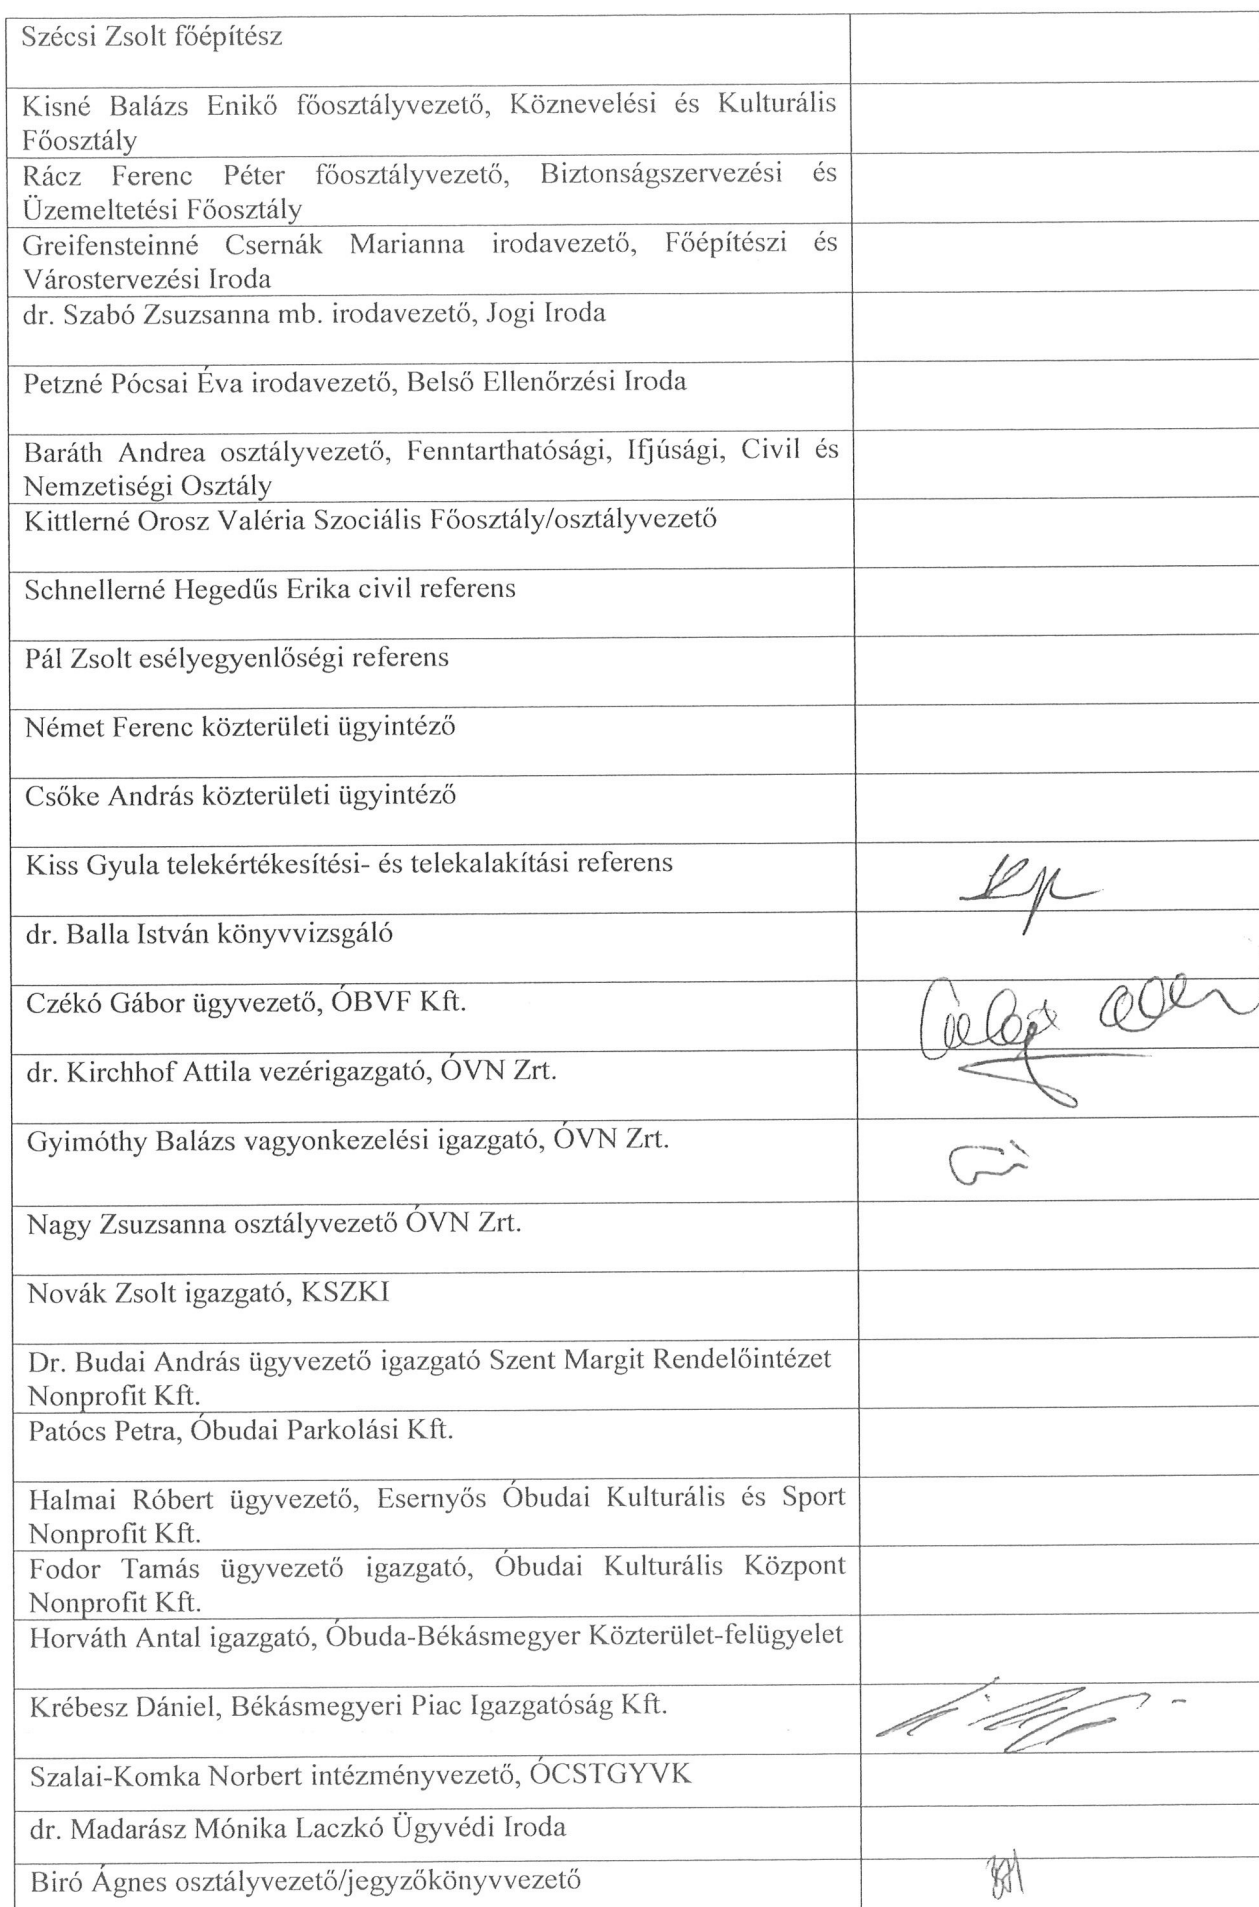 Szécsi Zsolt főépítész
Kisné Balázs Enikő főosztályvezető, Köznevelési és Kulturális
Főosztály
Rácz Ferenc Péter főosztályvezető, Biztonságszervezési és
Üzemeltetési Főosztály
Greifensteinné Csernák Marianna irodavezető, Főépítészi és
Várostervezési Iroda
dr. Szabó Zsuzsanna mb. irodavezető, Jogi Iroda
Petzné Pócsai Éva irodavezető, Belső Ellenőrzési Iroda
Baráth Andrea osztályvezető, Fenntarthatósági, Ifjúsági, Civil és
Nemzetiségi Osztály
Kittlerné Orosz Valéria Szociális Főosztály/osztályvezető
Schnellerné Hegedűs Erika civil referens
Pál Zsolt esélyegyenlőségi referens
Német Ferenc közterületi ügyintéző
Csőke András közterületi ügyintéző
Kiss Gyula telekértékesítési- és telekalakítási referens
dr. Balla István könyvvizsgáló
Czékó Gábor ügyvezető, ÓBVF Kft.
dr. Kirchhof Attila vezérigazgató, ÓVN Zrt.
Gyimóthy Balázs vagyonkezelési igazgató, ÓVN Zrt.
Nagy Zsuzsanna osztályvezető ÓVN Zrt.
Novák Zsolt igazgató, KSZKI
Dr. Budai András ügyvezető igazgató Szent Margit Rendelőintézet
Nonprofit Kft.
Patócs Petra, Óbudai Parkolási Kft.
Halmai Róbert ügyvezető, Esernyős Óbudai Kulturális és Sport
Nonprofit Kft.
Fodor Tamás ügyvezető igazgató, Óbudai Kulturális Központ
Nonprofit Kft.
Horváth Antal igazgató, Óbuda-Békásmegyer Közterület-felügyelet
Krébesz Dániel, Békásmegyeri Piac Igazgatóság Kft.
Szalai-Komka Norbert intézményvezető, ÓCSTGYVK
dr. Madarász Mónika Laczkó Ügyvédi Iroda
Biró Ágnes osztályvezető/jegyzőkönyvvezető